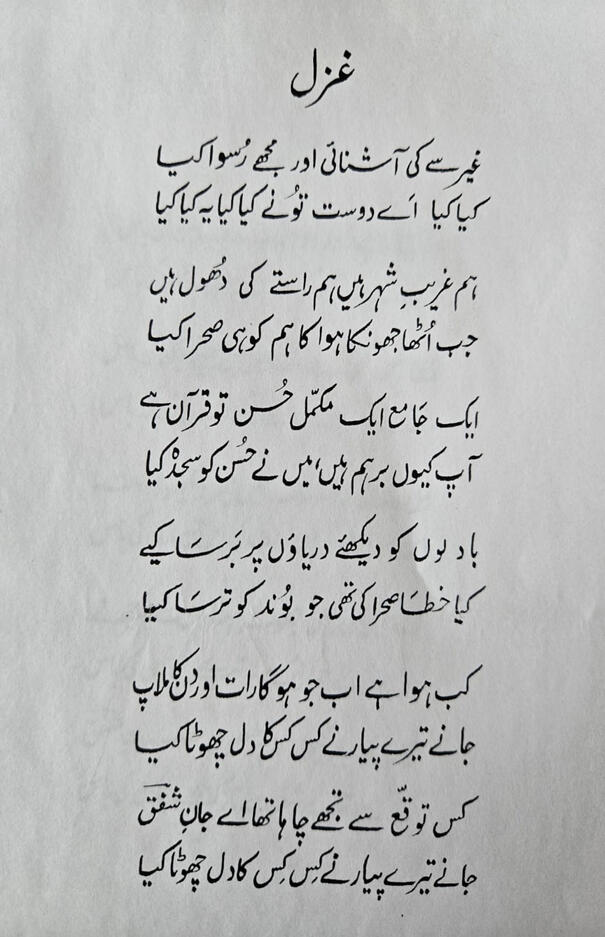 غزل
غیر سے کی آشنائی اور مجھے رُسوا کیا
کیا کیا اَے دوست تُونے کیا کیا یہ کیا کیا
ہم غریبِ شہر ہیں ہم راستے کی دُھول ہیں
جب اُٹھا جھونکا ہوا کا ہم کو ہی صحرا کیا
ایک جَامع ایک مکمّل حُسن تو قرآن ہے
آپ کیوں برہم ہیں، میں نے حُسن کو سجدْہ کیا
بادلوں کو دیکھئے دریاؤں پر بَرسَا کیے
کیا خطَا صحرا کی تھی جو بُوند کو ترسَا کیا
کب ہوا ہے اب جو ہوگا رات اور دِن کا ملاپ
جانے تیرے پیار نے کس کس کا دل چھوٹا کیا
کس توقّع سے تجھے چاہا تھا اے جانِ شفقؔ
جانے تیرے پیار نے کِس کِس کا دل چھوٹا کیا